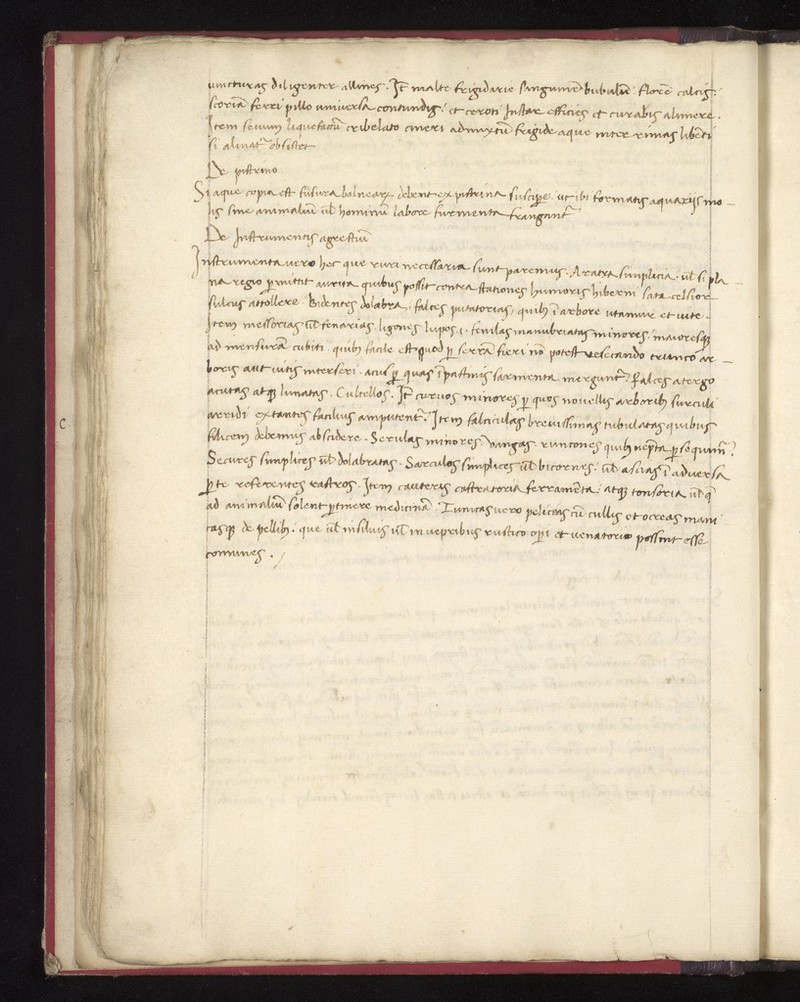 iuncturas diligenter allines. Itē malte frigidarie sanguinē bubulū florē calcis:
scoriā ferri pillo universa contundis: et ceroti instar efficies et curabis alinere.
Item sevum liquefactū cribelato cineri admixtū frigide aque inter rimas libēti
si alinat obsistet
De pistrino
Si aque copia est fusura balnearȝ debent ex pistrina suscipe. ut ibi formatis aquarijs mo-
lis sine animaliū ul hominū labore furmenta frangant
De Instrumentis agrestiū
Instrumenta vero hec que ruri necessaria sunt paremus. Aratra simplicia. ul si pla-
na regio pmittit aurita quibus possit contra stationes humoris hiberni sata celsior
sulcus attollere. Bidentes dolabra, falces putatorias, quibȝ ī arbore utamur et vite.
Item messorias ul fenarias. ligones lupos. i. ferrulas manubriatas minores. maioresqȝ
ad mensurā cubiti. quibȝ facile est quod p serrā fieri nō potest resecando trunco ar-
boris aut vitis interseri. acus p quas ī pastinis sarmenta mergunt. Falces a tergo
acutas atqȝ lunatas. Cultellos. Itē curvos minores p quos novellis arboribȝ surculi
arridi extantes facilius amputent. Item falciculas brevissimas tubulatas quibus
filicem debemus abscidere. Serulas minores vangas runcones quibȝ vepta psequim.
Secures simplices ul dolabratas. Sarculos simplices ul bicornes. ul ascias ī adversa
pte referentes rastros. Item cauteris castratoria ferramēta. atqȝ tonsoria ul q
ad animaliū solent ptinere medicinā. Tunicas vero peliceas cū cullis et ocreas mani
casqȝ de pellibȝ. que ul in silvis ul in vepribus rustico opi et venatorio possint esse
comunes.
C